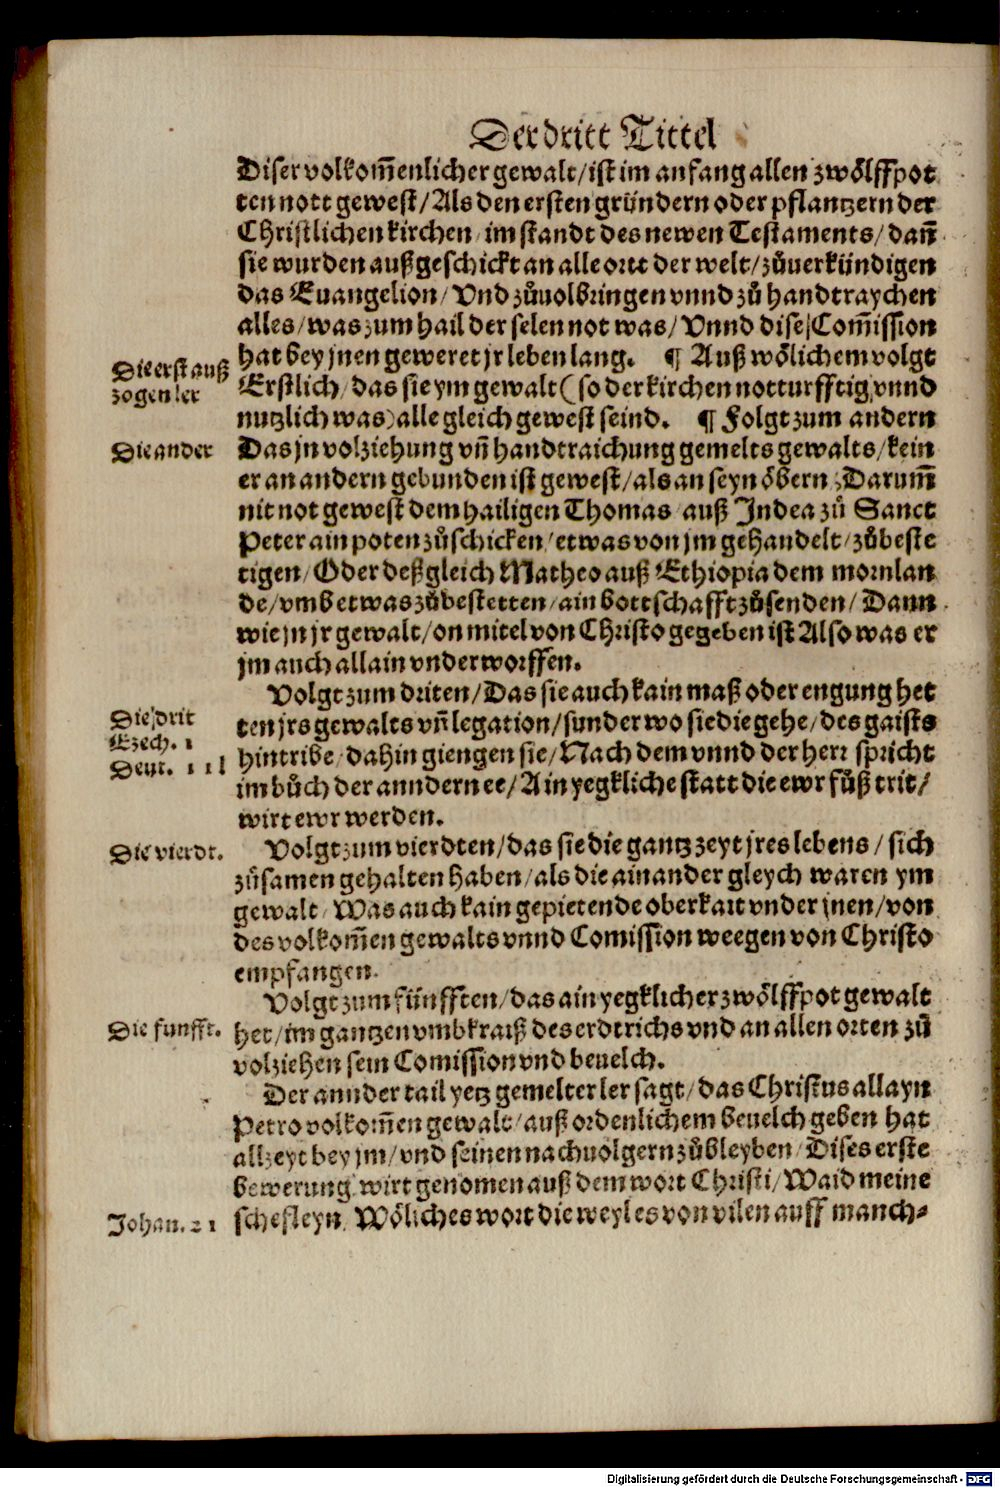 Der dritt Tittel
Diser volkom̅enlicher gewalt/ ist im anfang allen zwoͤlffpot
ten nott gewest/ Als den ersten gründern oder pflantzern der
Christlichen kirchen/ im standt des newen Testaments/ dan̅
sie wurden außgeschickt an alle ortt der welt/ zůuerkündigen
das Euangelion/ Vnd zůuolbringen vnnd zů handtraychen
alles/ was zum hail der selen not was/ Vnnd dise Com̅ission
hat bey jnen geweret jr leben lang. ¶ Auß woͤlichem volgt
Die erst auß
zogen ler
Erstlich/ das sie ym gewalt (so der kirchen notturfftig vnnd
nutzlich was) alle gleich gewest seind. ¶ Folgt zum andern
Die ander
Das jn volziehung vn̅ handtraichung gemelts gewalts/ kein
er an andern gebunden ist gewest/ als an seyn oͤbern/ Darum̅
nit not gewest dem hailigen Thomas/ auß Indea zů Sanct
Peter ain poten zůschicken/ etwas von jm gehandelt/ zůbeste
tigen/ Oder deßgleich Matheo auß Ethiopia dem mornlan
de/ vmb etwas zůbestetten/ ain bottschafft zůsenden/ Dann
wie jn jr gewalt/ on mitel von Christo gegeben ist Also was er
jm auch allain vnderworffen.
Volgt zum driten/ Das sie auch kain maß oder engung het
Die drit
Ezech. 1
Deut. 11
ten jrs gewalts vn̅ legation/ sunder wo sie die gehe/ des gaists
hintribe/ dahin giengen sie/ Nach dem vnnd der herr spricht
im bůch der anndern ee/ Ain yegkliche statt die ewr fůß trit/
wirt ewr werden.
Die vierdt.
Volgt zum vierdten/ das sie die gantz zeyt jres lebens/ sich
zůsamen gehalten haben/ als die ainander gleych waren ym
gewalt/ Was auch kain gepietende oberkait vnder jnen/ von
des volkom̅en gewalts vnnd Comission weegen von Christo
empfangen.
Volgt zum fünfften/ das ain yegklicher zwoͤlffpot gewalt
Die funfft.
het/ im gantzen vmbkraiß des erdtrichs vnd an allen orten zů
volziehen sein Comission vnd beuelch.
Der annder tail yetz gemelter ler sagt/ das Christus allayn
Petro volkom̅en gewalt/ auß ordenlichem beuelch geben hat
allzeyt bey jm/ vnd seinen nachuolgern zůbleyben/ Dises erste
bewerung wirt genomen auß dem wort Christi/ Waid meine
Johan. 21
schefleyn. Woͤliches wort die weyl es von vilen auff manch-
Digitalisierung gefördert durch die Deutsche Forschungsgemeinschaft - DFG